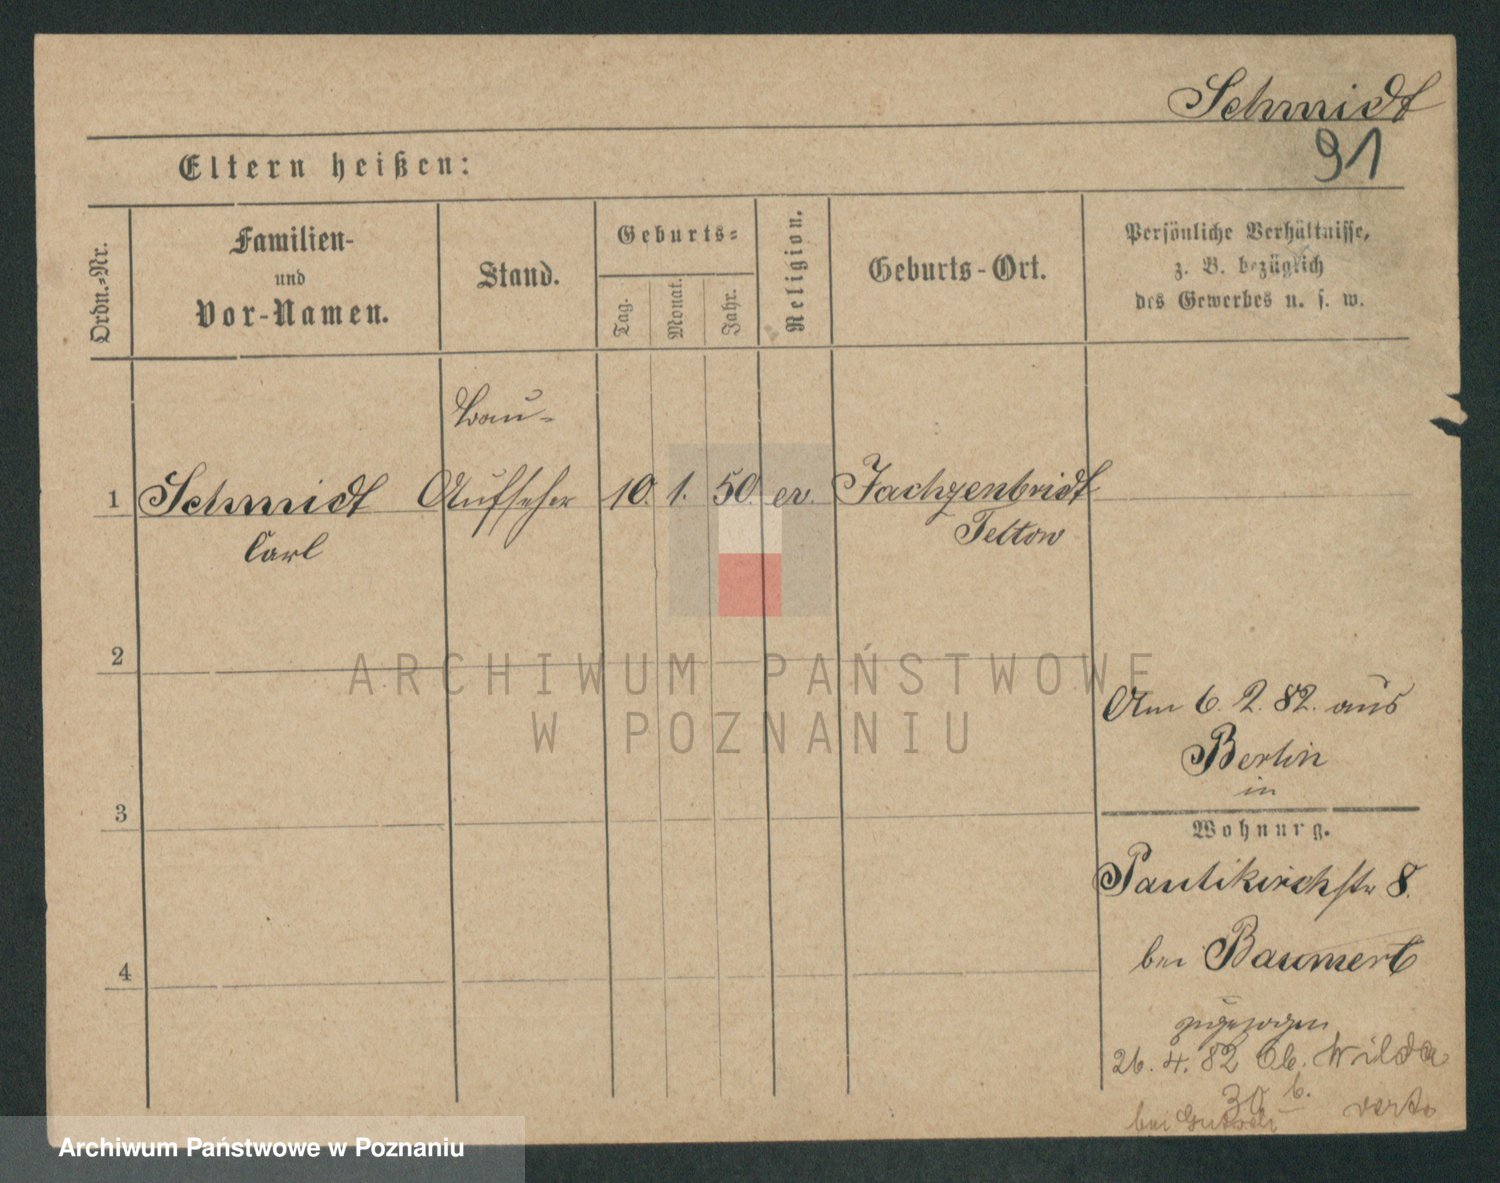 Schmidt
91
Eltern heißen:
Ordn.-Nr.
Familien-
und
Vor-Namen.
Stand.
Geburts-
Tag.
Monat.
Jahr.
Religion.
Geburts-Ort.
Persönliche Verhältnisse,
z. B. bezüglich
des Gewerbes u. s. w.
Bau-
1 Schmidt Aufseher 10. 1. 50. ev. Jachzenbridt
Carl Teltow
2
ARCHIWUM PAŃSTWOWE
W POZNANIU
Am 6. 2. 82. aus
Berlin
in
3
Wohnung.
Paulikirchstr 8.
4
bei Baumert
zugezogen
26. 4. 82 Ob. Wilda
30 b.
bei verte
Archiwum Państwowe w Poznaniu